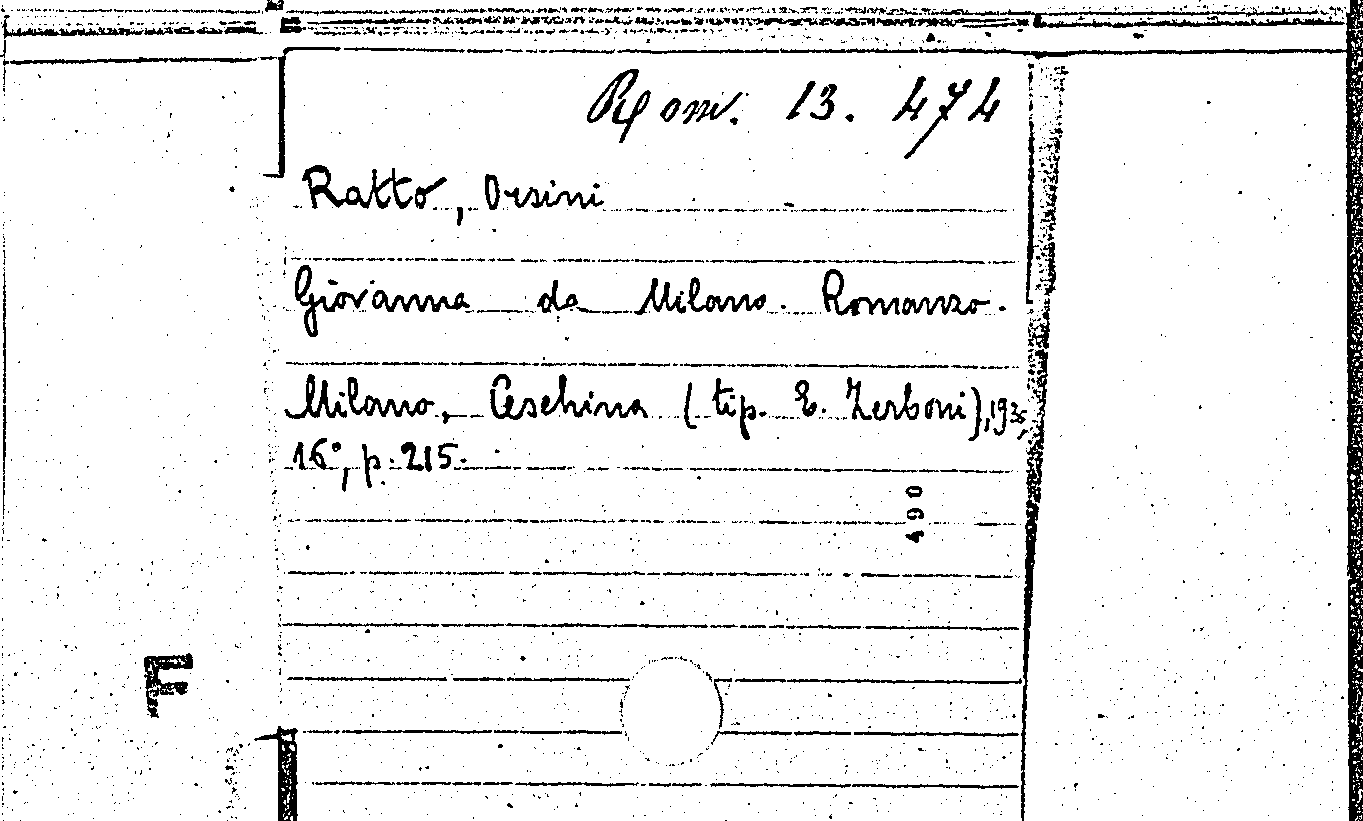 Rom. 13. 474
Ratto, Orsini
Giovanna da Milano. Romanzo.
Milano, Ceschina (tip. E. Zerboni),
16°, p. 215.
490
F